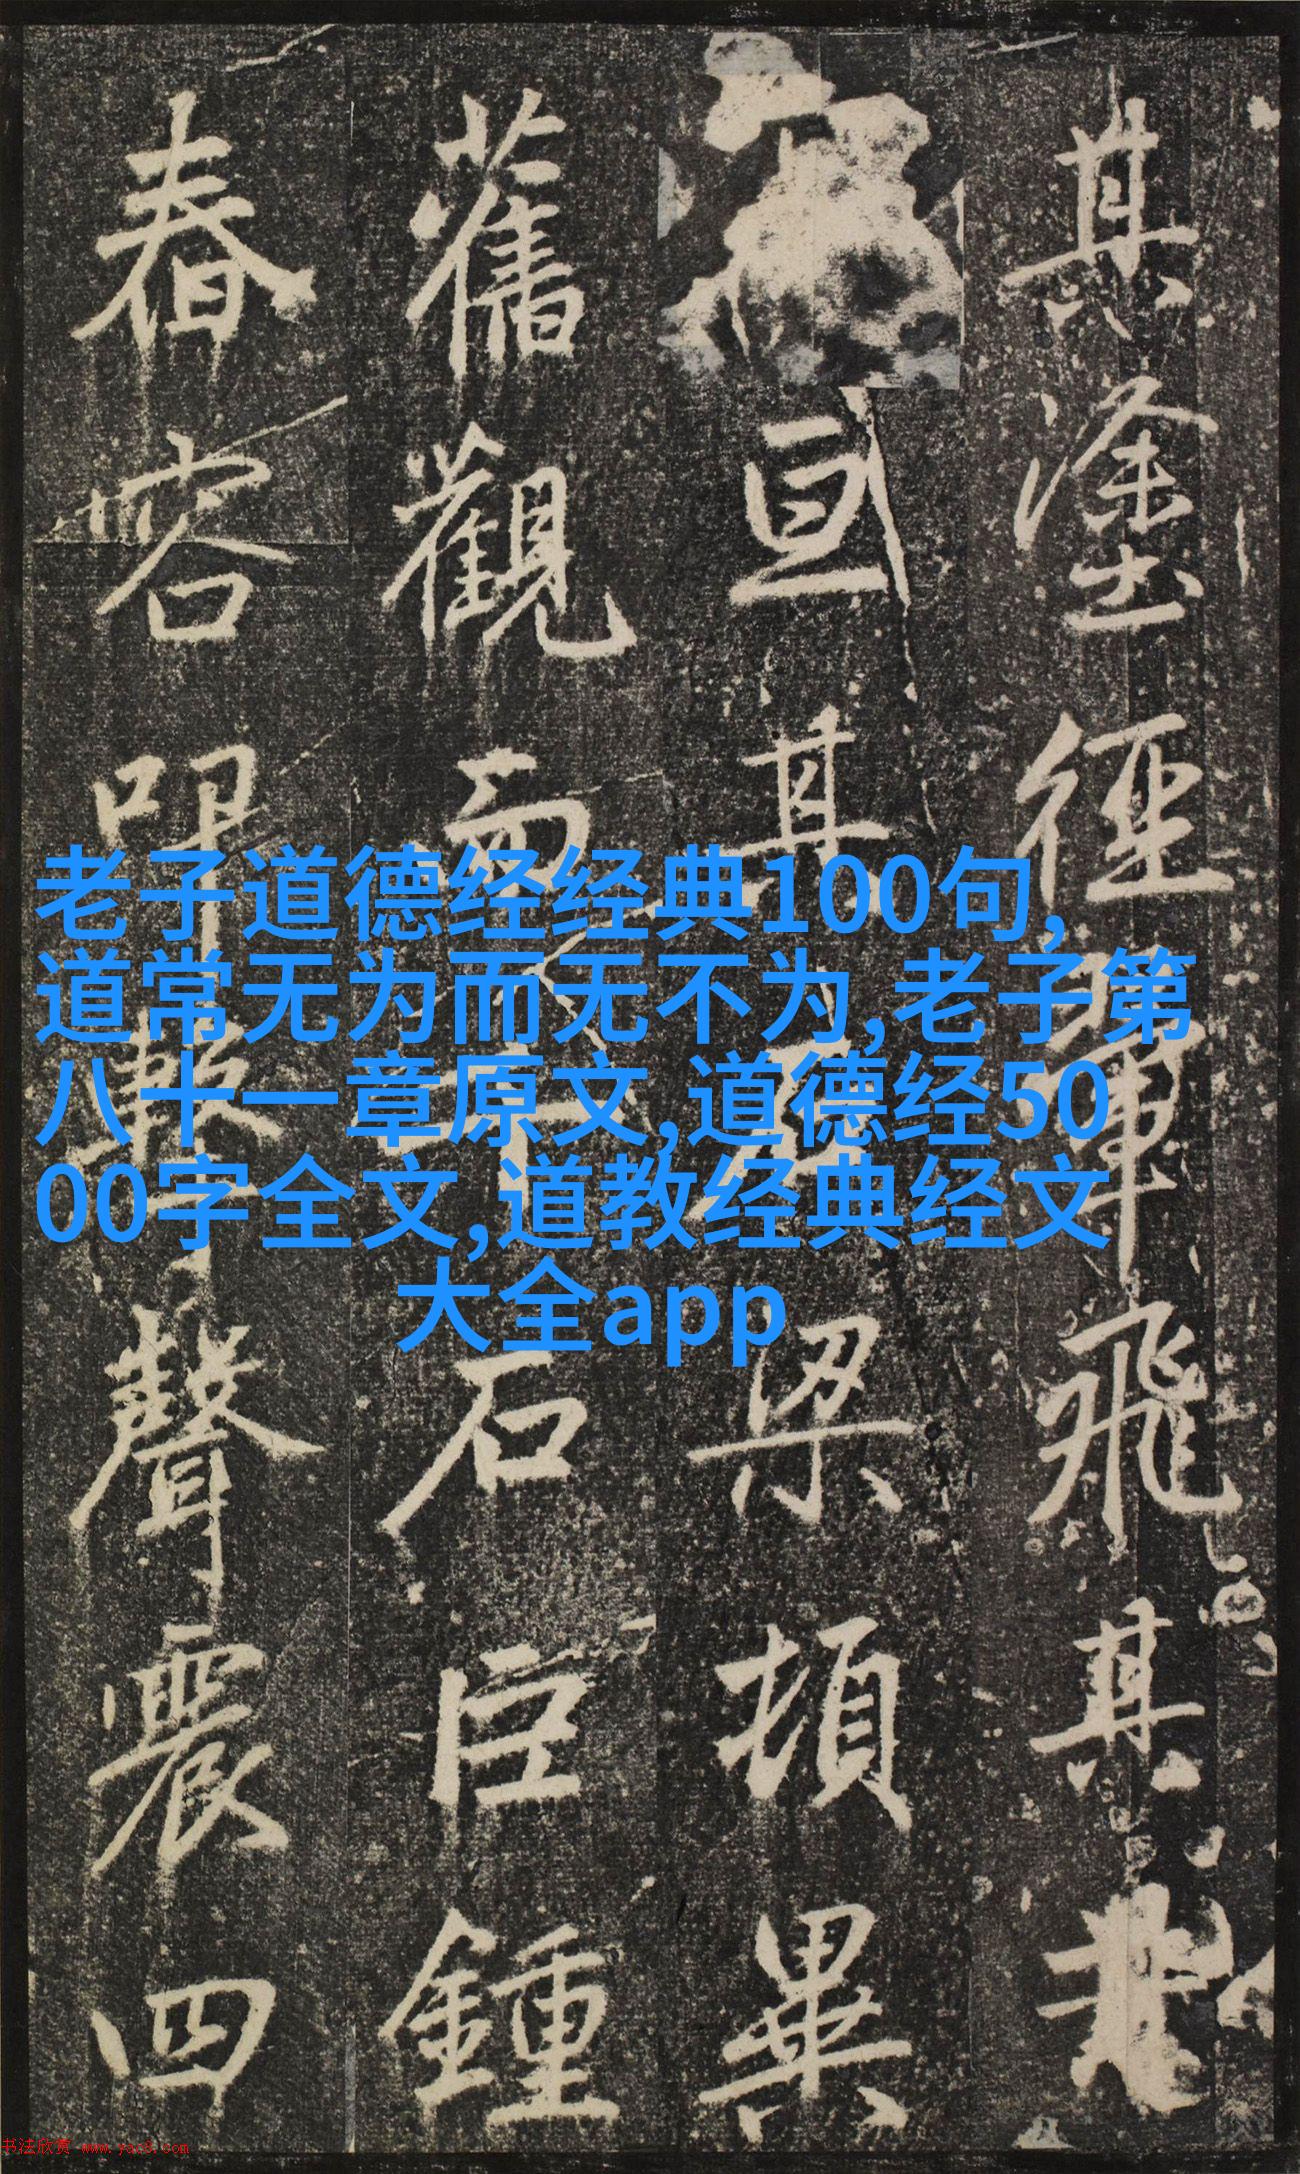 其塗徑翬飛其
亘其梁頓異
舊觀而石巨鍾
春容叩擊聲震四
老子道德经经典100句,
道常无为而无不为,老子第
八十一章原文,道德经50
00字全文,道教经典经文
大全app
书法欣赏 www.yac8.com